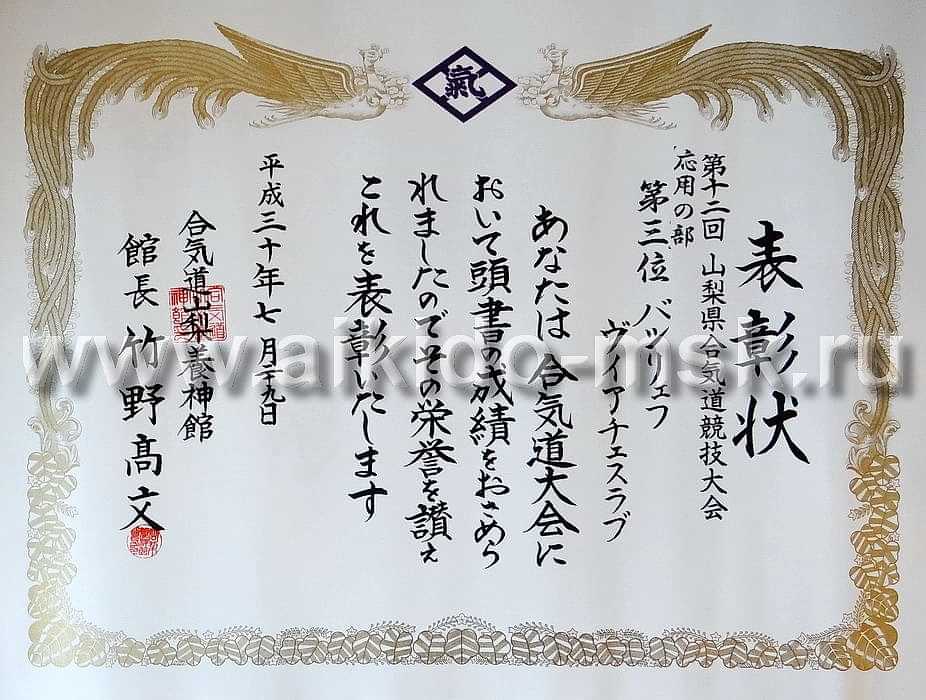 氣
表彰状
第十二回 山梨県合気道競技大会
応用の部
第三位 バシリェフ
ヴィアチェスラブ
あなたは合気道大会に
おいて頭書の成績をおさめら
れましたのでその栄誉を讃え
これを表彰いたします
平成三十年七月二十九日
合気道山梨養神館
館長 竹野高文
www.aikido-msk.ru